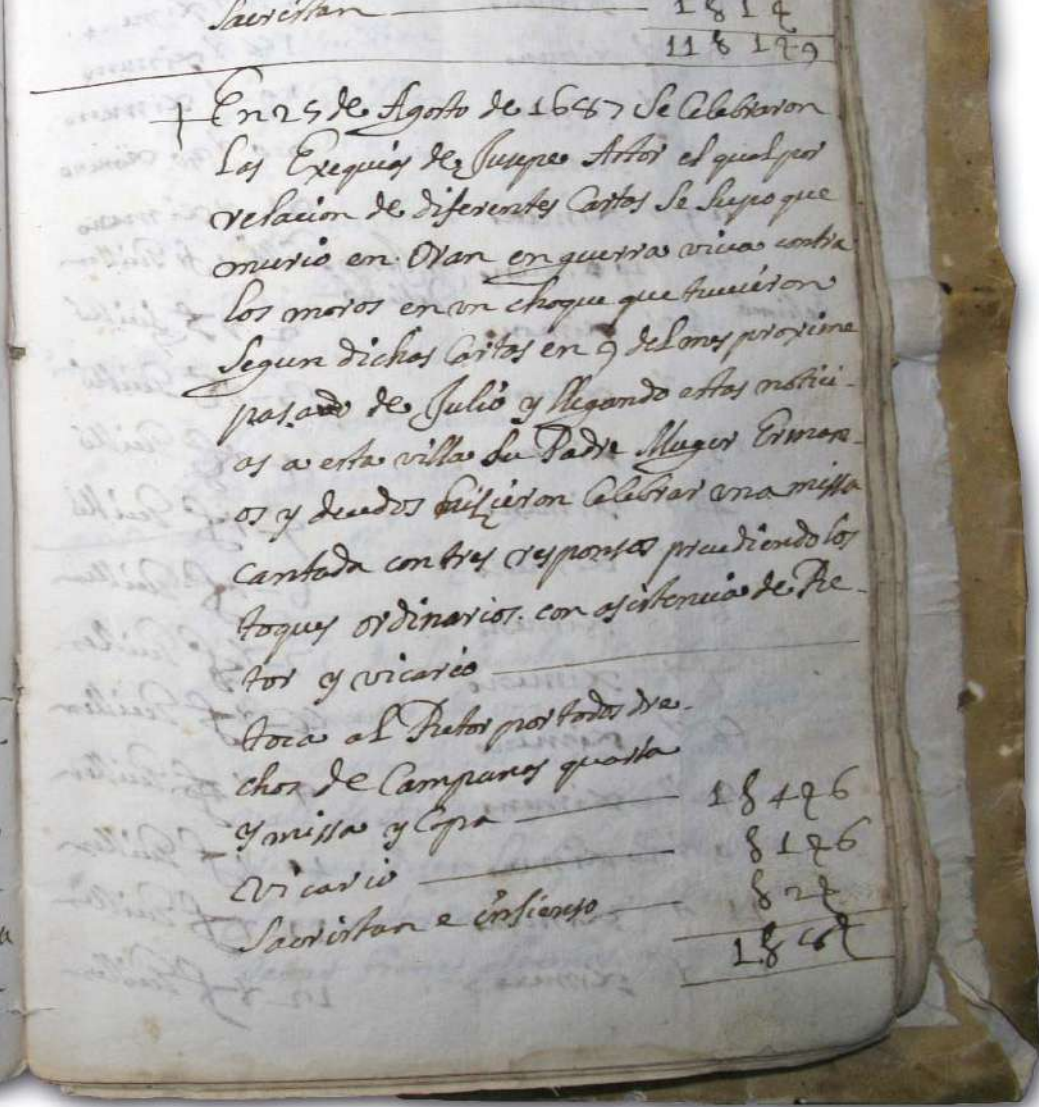 Sacristan — 1 § 1 ƪ
11 § 1 ƪ 9
+ En 25 de Agosto de 1687 se Celebraron
las Exequias de Jusepe Ator el qual por
relacion de diferentes Cartas se supo que
murio en Oran en guerra viva contra
los moros en un choque que tuvieron
segun dichas Cartas en 9 del mes proxime
pasado de Julio y llegando estas notici-
as a esta villa su Padre Muger Erman-
os y deudos hisieron Celebrar una missa
cantada con tres responsos precediendo los
toques ordinarios. con asistencia de Re-
tor y vicario
toca al Retor por todos dre-
chos de Campanas quarta
y missa y Capa — 1 § 4 ƪ 6
Vicario — § 1 ƪ 6
Sacristan e insienso — § 2 ƪ
1 §